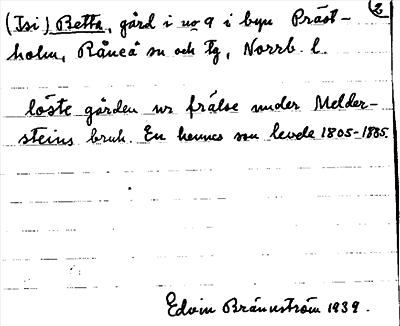 (2
(Isi) Betta, gård i no 9 i byn Präst-
holm, Råneå sn och tg, Norrb. l.
löste gården ur frälse under Melder-
steins bruk. En hennes son levde 1805-1885.
Edvin Brännström 1939.